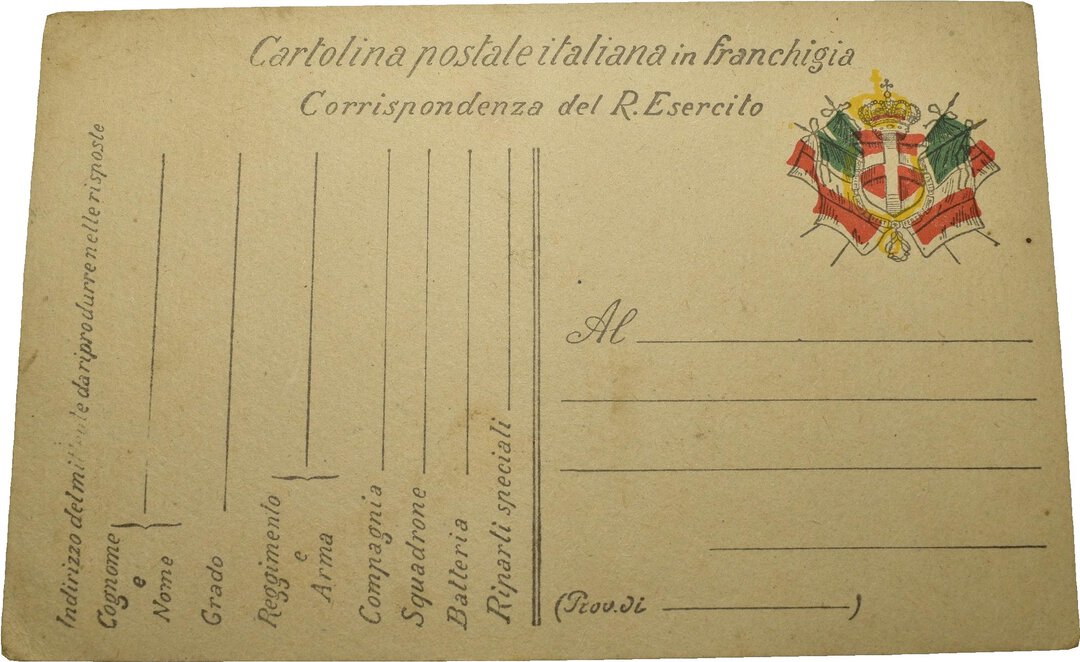 Cartolina postale italiana in franchigia
Corrispondenza del R. Esercito
Indirizzo del militare da riprodurre nelle risposte
Cognome
e
Nome
Grado
Reggimento
e
Arma
Compagnia
Squadrone
Batteria
Riparti speciali
Al
(Prov. di )